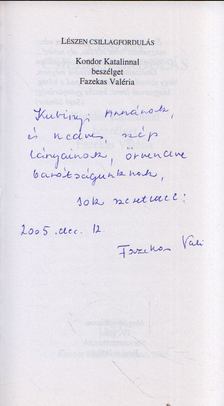 LÉSZEN CSILLAGFORDULÁS
Kondor Katalinnal
beszélget
Fazekas Valéria
Kubinyi Annának,
és kedves, szép
lányainak, örvendve
barátságunknak,
sok szeretettel:
2005. dec. 12
Fazekas Vali